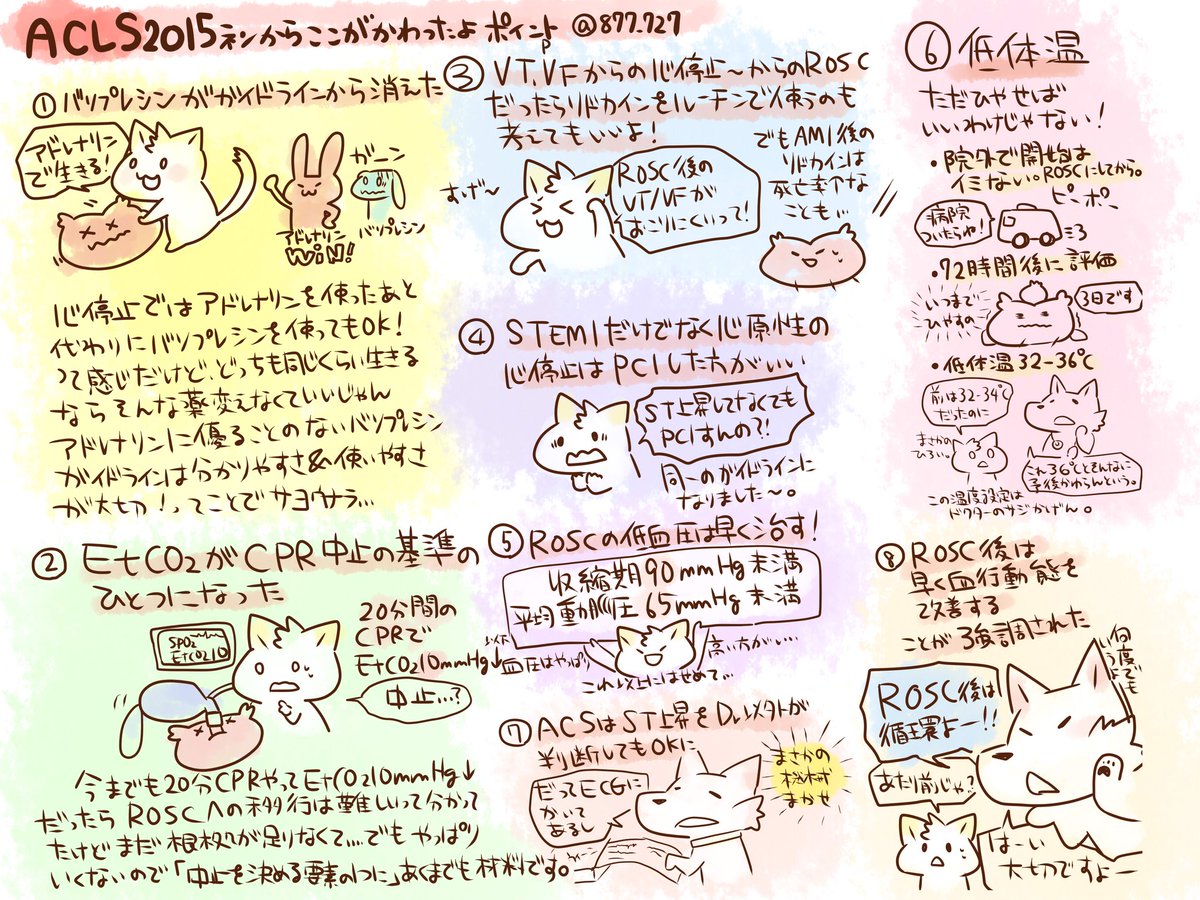 ACLS2015ネンからここがかわったよ ポイント @877_727
①バソプレシンがガイドラインから消えた
アドレナリン
で生きる!
ガーン
アドレナリン
WiN!
バソプレシン
心停止ではアドレナリンを使ったあと
代わりにバソプレシンを使ってもOK!
って感じだけど、どっちも同じくらい生きる
ならそんな薬変えなくていいじゃん
アドレナリンに優ることのないバソプレシン
ガイドラインは分かりやすさ&使いやすさ
が大切!ってことでサヨウナラ…
② EtCO2がCPR中止の基準の
ひとつになった
SPO2
EtCO2 10
20分間の
CPRで
EtCO2 10mmHg↓
中止…?
今までも20分CPRやってEtCO2 10mmHg↓
だったらROSCへの移行は難しいって分かって
たけどまだ根拠が足りなくて…でもやっぱり
いくないので「中止を決める要素の1つに」あくまでも材料です。
③ VT,VFからの心停止～からのROSC
だったらリドカインをルーチンで使うのも
考えてもいいよ!
すげ～
ROSC後の
VT/VFが
おこりにくいって!
でもAMI後の
リドカインは
死亡率が
ことも…
④ STEMIだけでなく心原性の
心停止はPCIした方がいい
ST上昇してなくても
PCIすんの?!
同一のガイドラインに
なりました～。
⑤ ROSCの低血圧は早く治す!
収縮期90mmHg未満
平均動脈圧65mmHg未満
以下
血圧はやっぱり
高い方がいい…
これ以上にはせめて…
⑥ 低体温
ただひやせば
いいわけじゃない!
・院外で開始は
イミない。ROSCにしてから。
ピーポー
病院
ついたらね!
・72時間後に評価
いつまで
ひやすの
3日です
・低体温32-36℃
前は32-34℃
だったのに
まさかの
ひろい。
これ36℃とそんなに
予後かわらんという。
この温度設定は
ドクターのサジかげん。
⑦ ACSはST上昇をDr.以外が
判断してもOKに
だってECGに
かいて
あるし
まさかの
機械
まかせ
⑧ ROSC後は
早く血行動態を
改善する
ことが強調された
何度でも
いうよ
ROSC後は
循環よー!!
あたり前じゃ?
はーい
大切ですよー